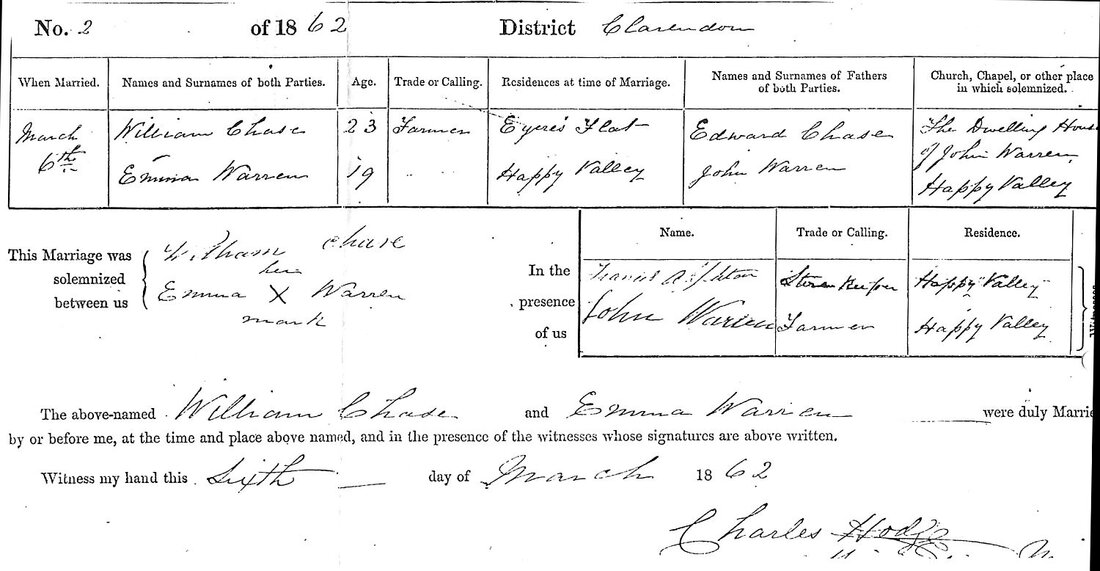 No. 2 of 1862 District Clarendon
When Married. Names and Surnames of both Parties. Age. Trade or Calling. Residences at time of Marriage. Names and Surnames of Fathers of both Parties. Church, Chapel, or other place in which solemnized.
March 6th William Chase 23 Farmer Eyre's Flat Edward Chase The Dwelling House
Emma Warren 19 Happy Valley John Warren of John Warren,
Happy Valley
Name. Trade or Calling. Residence.
This Marriage was solemnized between us
William Chase
her
Emma X Warren
mark
In the presence of us
Store Keeper Happy Valley
John Warren Farmer Happy Valley
Witnesses
The above-named William Chase and Emma Warren were duly Marrie
by or before me, at the time and place above named, and in the presence of the witnesses whose signatures are above written.
Witness my hand this Sixth day of March 1862
Charles Hodge